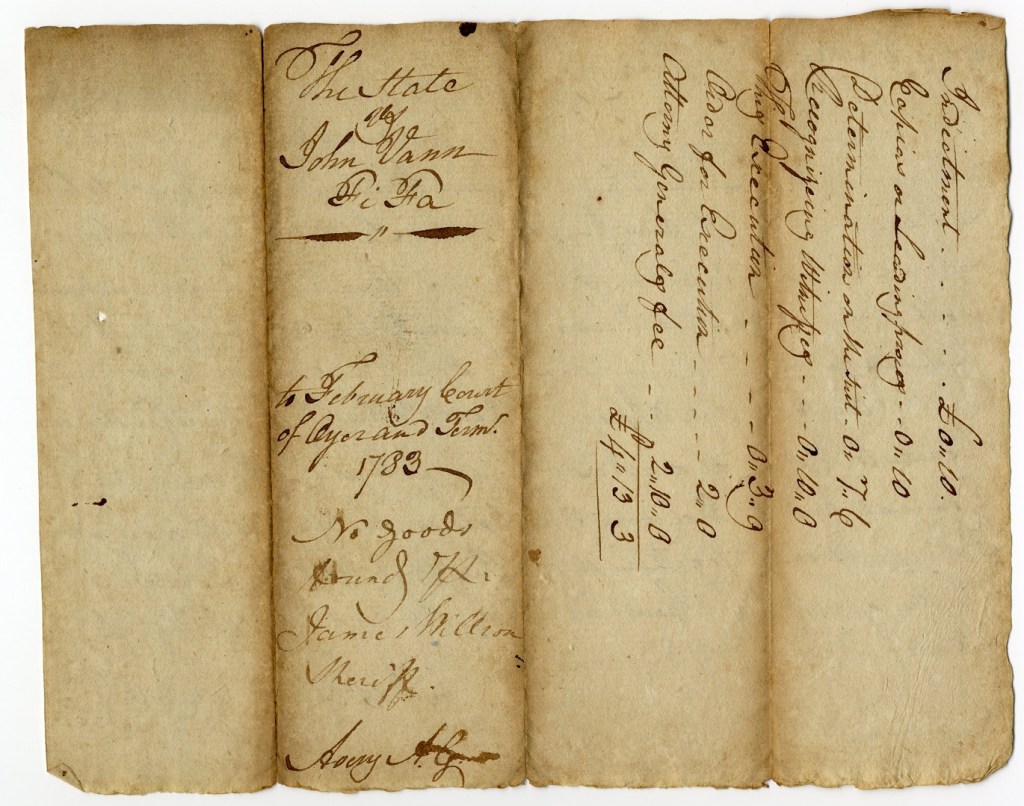 The State
vs
John Vann
Fi Fa
to February Court
of Oyer and Term.
1783
No goods
found
James Willson
Sheriff.
Avery A. G.
Indictment . . . . . £ 0 " 10.
Copias or Leading proces - - 0 " 10
Determination on the suit - 0 " 7 " 6
Recognizeing Witnesses - - - 0 " 10 " 0
This Execution - - - - - 0 " 3 " 9
Ordor for Execution - - - - 2 " 0
Attorny Generals fee - - 2 " 10 " 0
£ 4 " 13 3